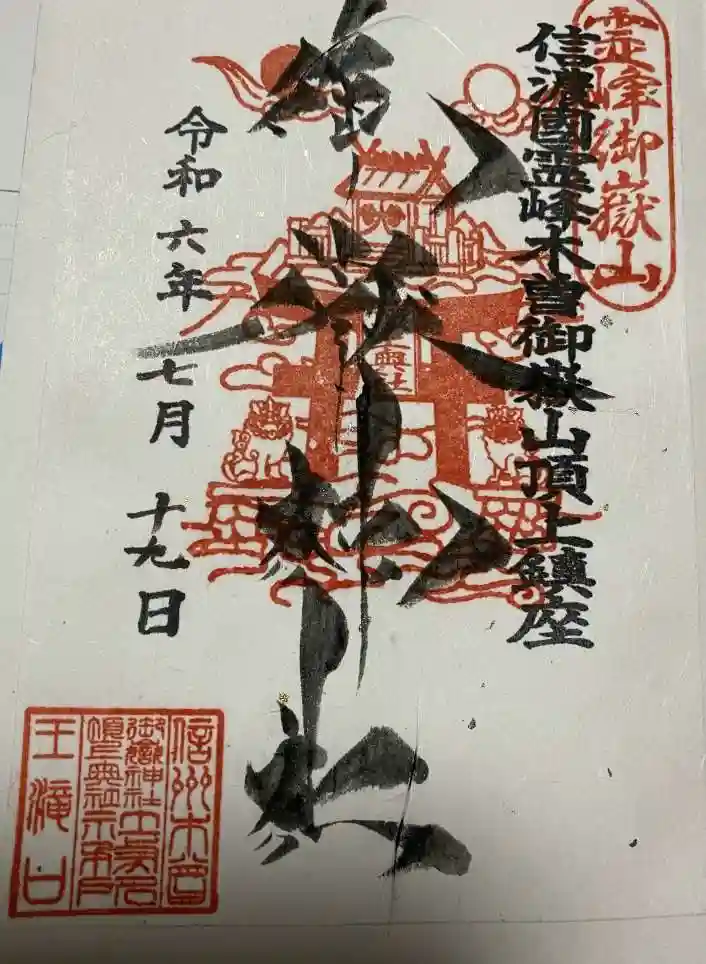 霊峰御嶽山
信濃國霊峰木曽御嶽山頂上鎮座
御嶽神社
奥社
令和六年七月十九日
信州木曽
御嶽神社
王滝口